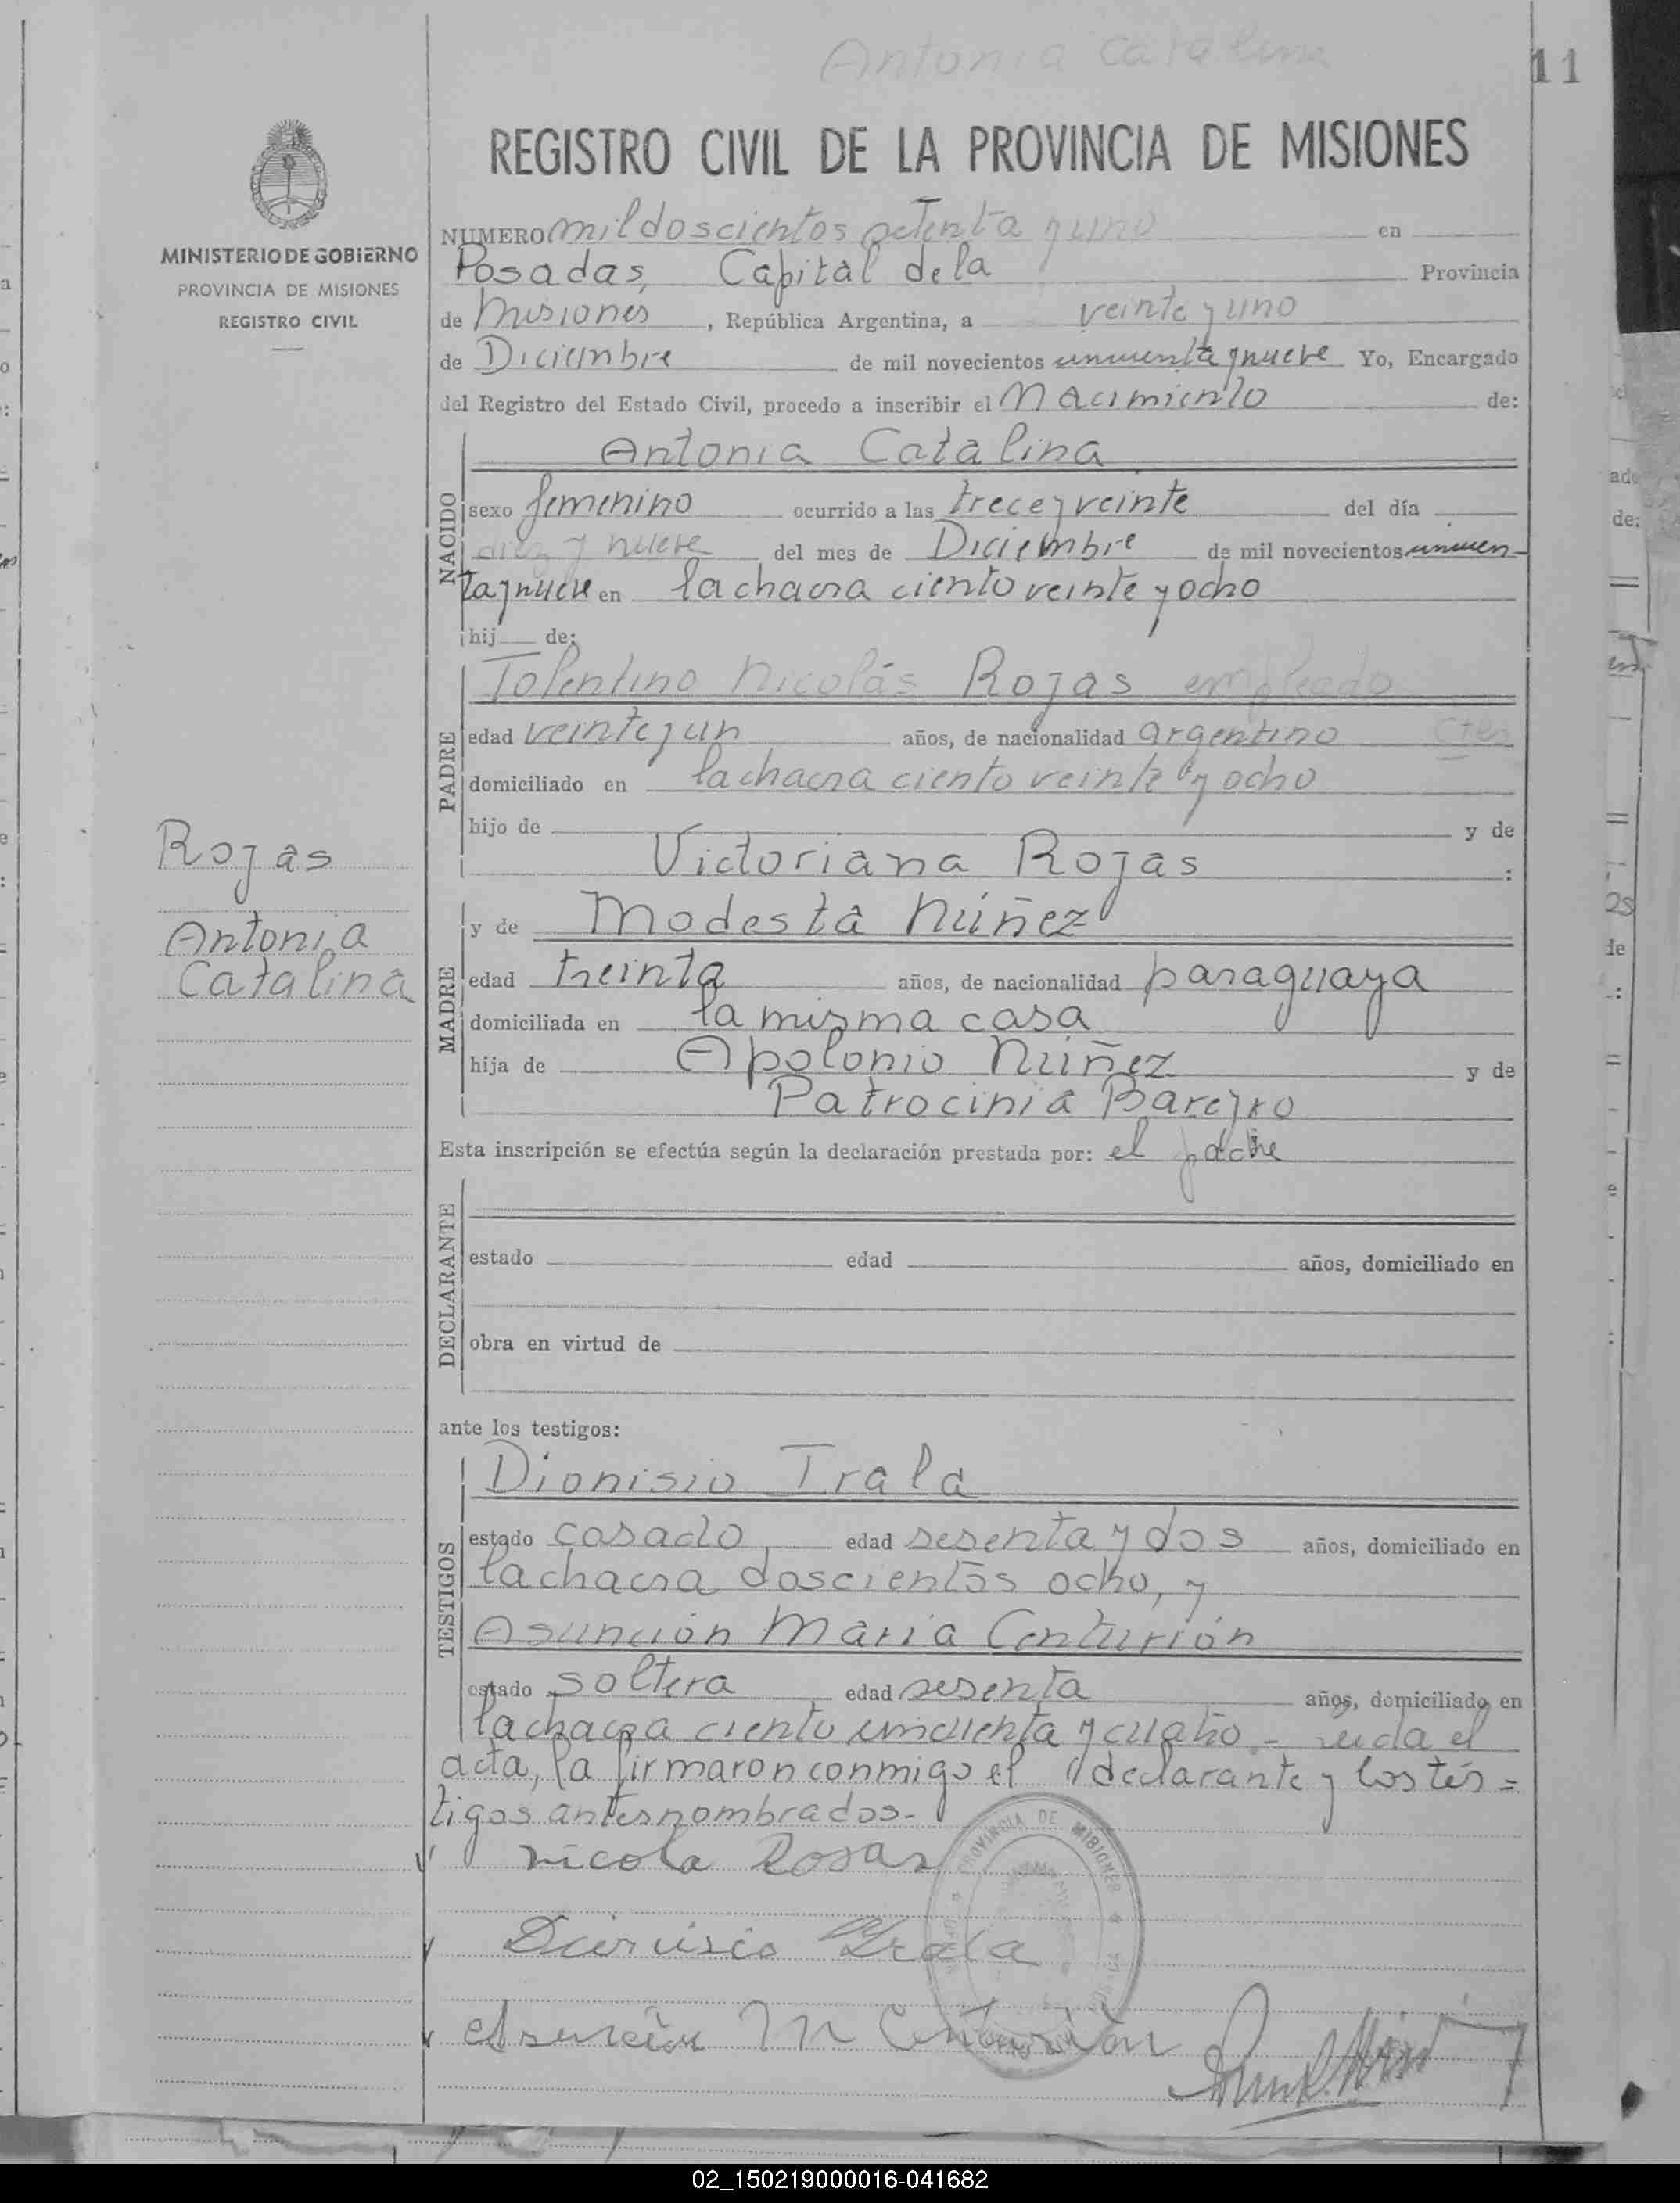 Antonia Catalina
11
REGISTRO CIVIL DE LA PROVINCIA DE MISIONES
MINISTERIO DE GOBIERNO
PROVINCIA DE MISIONES
REGISTRO CIVIL
NUMERO mil doscientos setenta y uno en
Posadas, Capital de la Provincia
de Misiones, República Argentina, a veinte y uno
de Diciembre de mil novecientos cincuenta y nueve Yo, Encargado
del Registro del Estado Civil, procedo a inscribir el Nacimiento de:
NACIDO
Antonia Catalina
sexo femenino ocurrido a las trece y veinte del día
diez y nueve del mes de Diciembre de mil novecientos cincuen-
ta y nueve en la chacra ciento veinte y ocho
hij de:
PADRE
Tolentino Nicolás Rojas empleado
edad veinte y un años, de nacionalidad argentino Ctes
domiciliado en la chacra ciento veinte y ocho
hijo de y de
Victoriana Rojas :
Rojas
Antonia
Catalina
MADRE
y de Modesta Núñez
edad treinta años, de nacionalidad paraguaya
domiciliada en la misma casa
hija de Apolonio Núñez y de
Patrocinia Bareyro
Esta inscripción se efectúa según la declaración prestada por: el padre
DECLARANTE
estado edad años, domiciliado en
obra en virtud de
ante los testigos:
TESTIGOS
Dionisio Irala
estado casado edad sesenta y dos años, domiciliado en
la chacra doscientos ocho, y
Asunción María Centurión
estado soltera edad sesenta años, domiciliado en
la chacra ciento cincuenta y cuatro.- Leída el
acta, la firmaron conmigo el declarante y los tes=
tigos antes nombrados.-
Nicola Rosas
Dionisio Yrala
PROVINCIA DE MISIONES
Asunción M Centurión
02_150219000016-041682